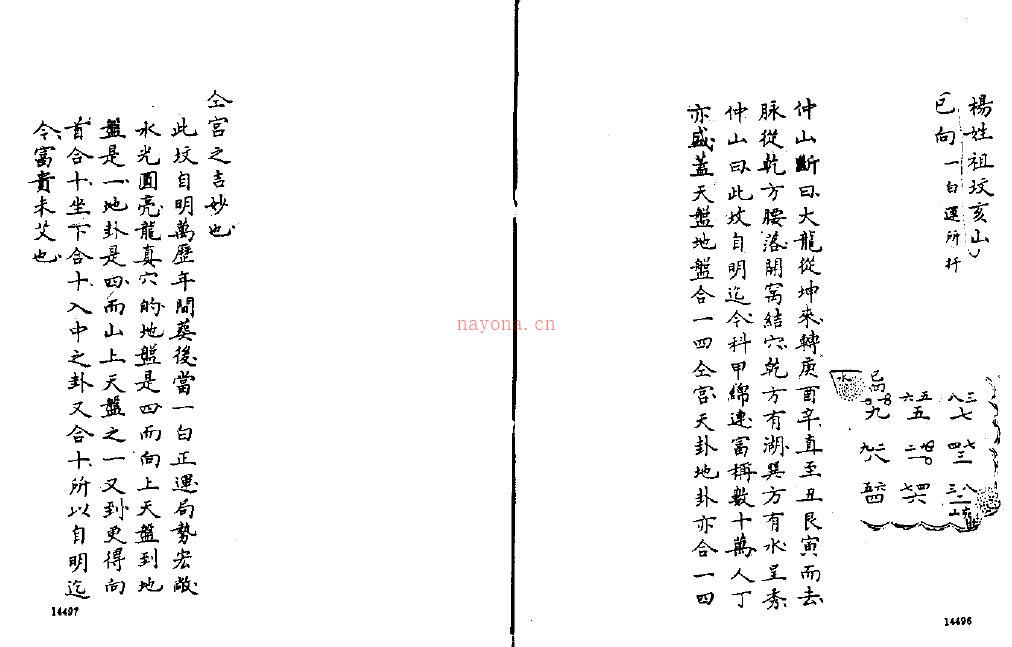 楊姓祖坟亥山
巳向 一白運所扦
巳向
水
八三
七
六五
五
九
四七
三
九二
八
仲山斷曰大龍從坤來轉庚酉辛直至丑艮寅而去
脉從乾方腰落開窩結穴乾方有湖巽方有水呈秀
仲山曰此坟自明迄今科甲綿連富稱數十萬人丁
亦盛蓋天盤地盤合一四仝宮天卦地卦亦合一四
14496
仝宮之吉妙也
此坟自明萬歷年間葬後當一白正運局勢宏敞
水光圓亮龍真穴的地盤是四而向上天盤到地
盤是一地卦是四而山上天盤之一又到更得向
首合十坐下合十入中之卦又合十所以自明迄
今富貴未艾也
14497
nayona.cn